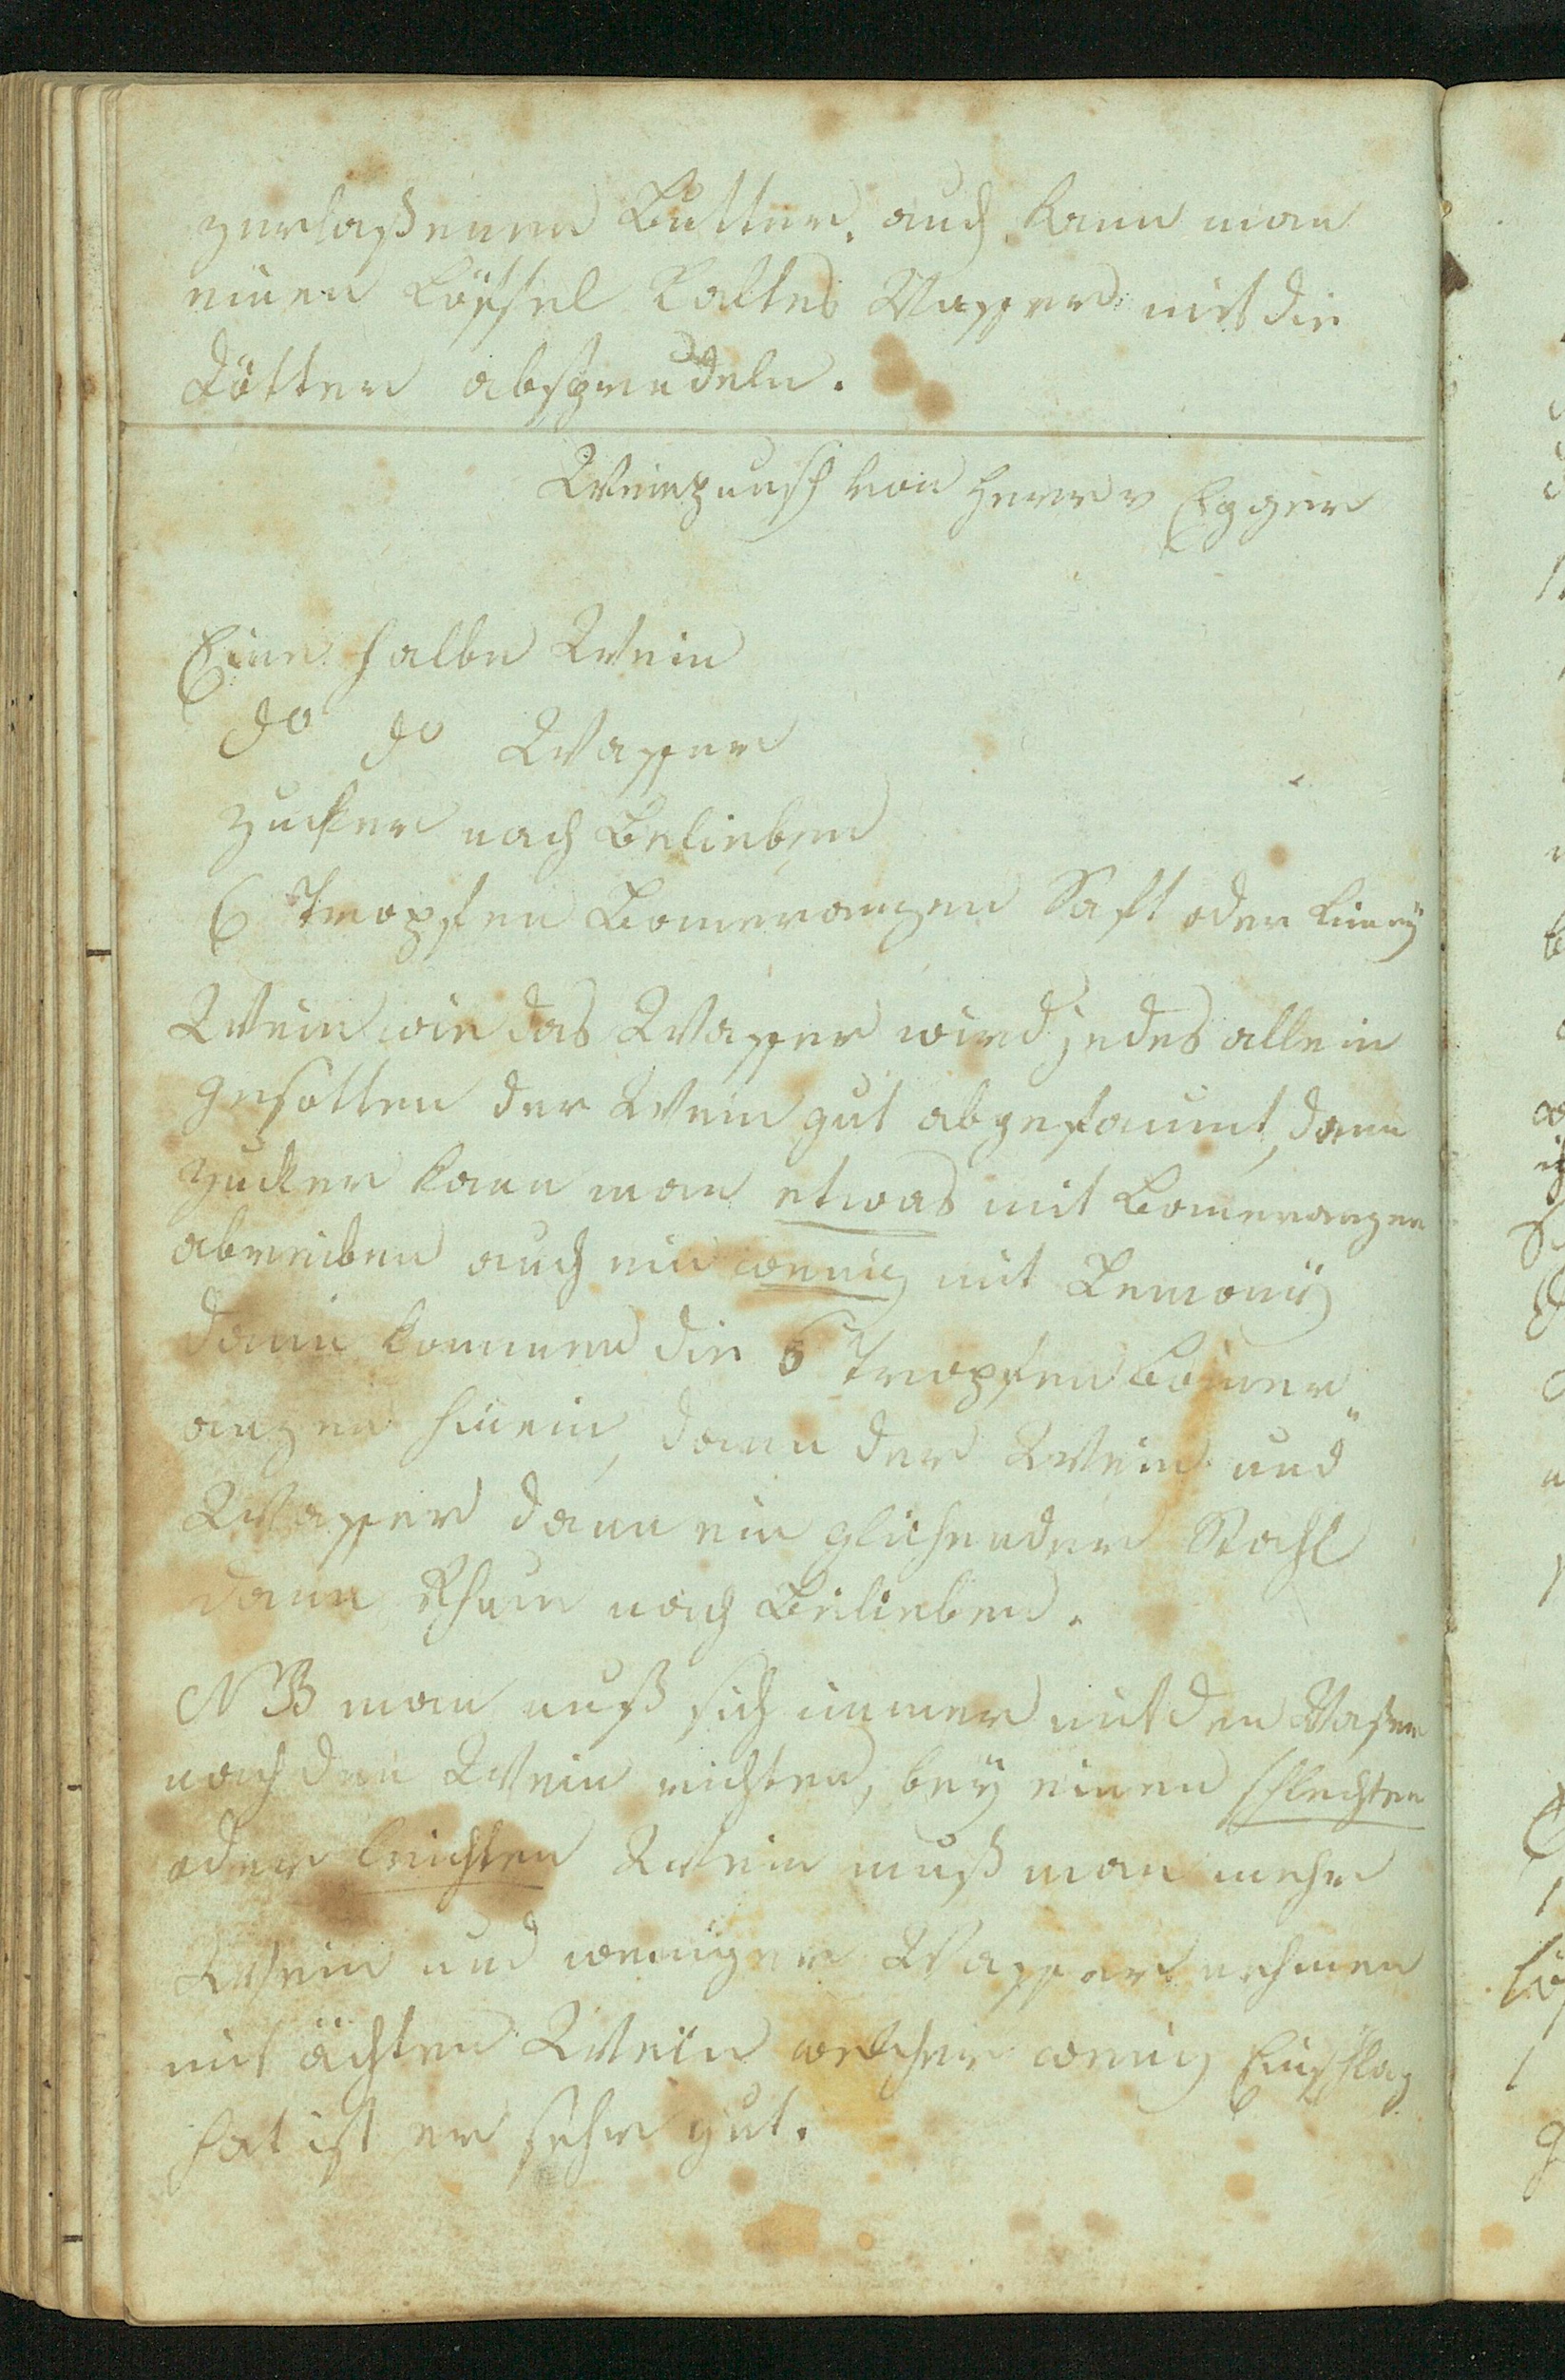 zerlaßenen Butter. auch kann man
einen Löffel kaltes Wasser mit die
Dötter absprudeln.
Weinpunsch von Herr v Egger
Eine halbe Wein
do do Wasser
Zucker nach Belieben
6 Tropfen Bomeranzen Saft oder
Wein wie das Wasser wird jedes allein
gesotten der Wein gut abgefaumt, dann
Zucker kann man etwas mit Bomeranzen
abreiben auch ein wenig mit Lemonij
dann kommen die 6 Tropfen Bomer„
anzen hinein, dann der Wein und
Wasser dann ein glühender Stahl
dann Rhum nach Belieben.
NB man muß sich immer mit den Waßer
nach den Wein richten, bey einen schlechten
oder leichten Wein muß man mehr
Wein und weniger Wasser nehmen
mit ächten Wein welcher wenig Einschlag
hat ist er sehr gut.